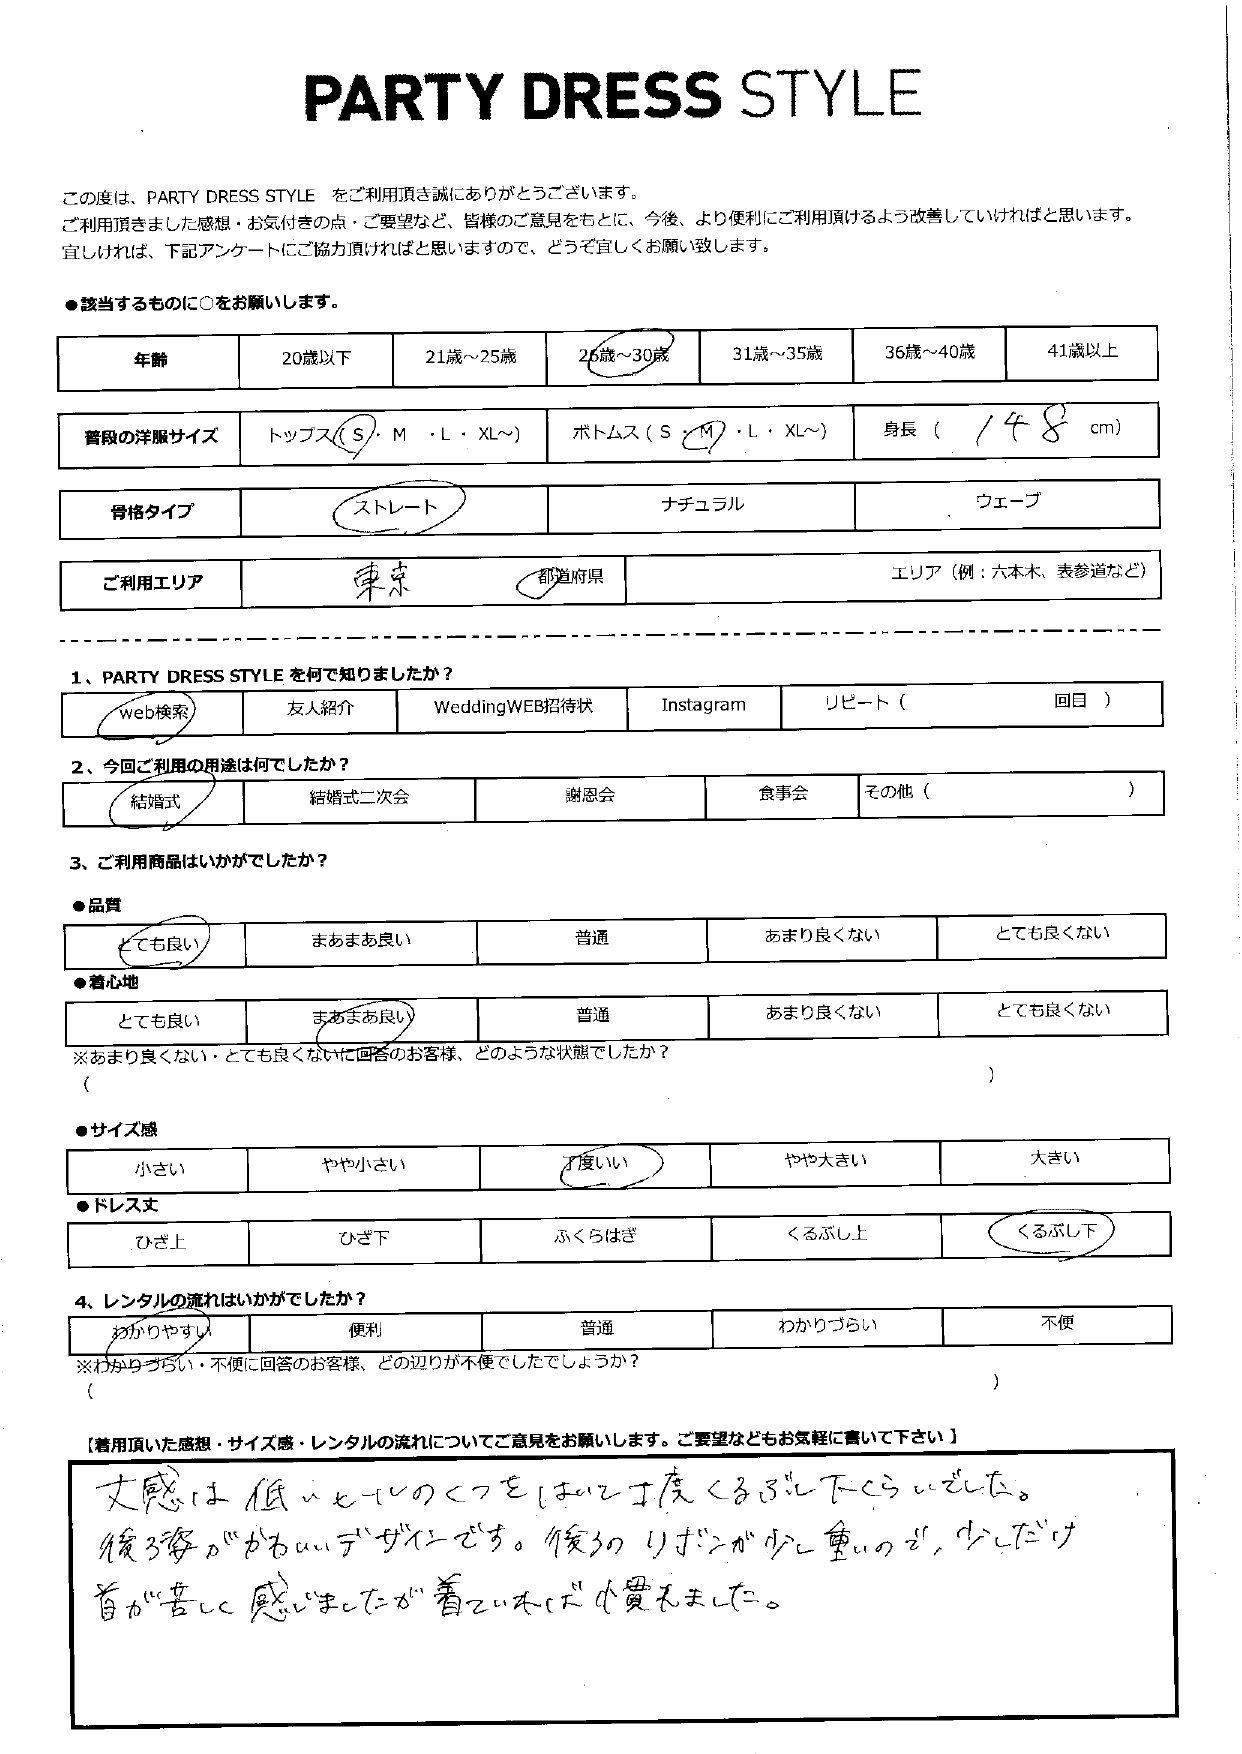 PARTY DRESS STYLE
この度は、PARTY DRESS STYLE をご利用頂き誠にありがとうございます。
ご利用頂きました感想・お気付きの点・ご要望など、皆様のご意見をもとに、今後、より便利にご利用頂けるよう改善していければと思います。
宜しければ、下記アンケートにご協力頂ければと思いますので、どうぞ宜しくお願い致します。
●該当するものに○をお願いします。
年齢 20歳以下 21歳～25歳 26歳～30歳 31歳～35歳 36歳～40歳 41歳以上
普段の洋服サイズ トップス( S ・ M ・L ・ XL～) ボトムス ( S ・ M ・L ・ XL～) 身長 ( 148 cm)
骨格タイプ ストレート ナチュラル ウェーブ
ご利用エリア 東京 都道府県 エリア（例：六本木、表参道など）
1、PARTY DRESS STYLE を何で知りましたか？
web検索 友人紹介 WeddingWEB招待状 Instagram リピート ( 回目 )
2、今回ご利用の用途は何でしたか？
結婚式 結婚式二次会 謝恩会 食事会 その他 ( )
3、ご利用商品はいかがでしたか？
●品質
とても良い まあまあ良い 普通 あまり良くない とても良くない
●着心地
とても良い まあまあ良い 普通 あまり良くない とても良くない
※あまり良くない・とても良くないに回答のお客様、どのような状態でしたか？
( )
●サイズ感
小さい やや小さい 丁度いい やや大きい 大きい
●ドレス丈
ひざ上 ひざ下 ふくらはぎ くるぶし上 くるぶし下
4、レンタルの流れはいかがでしたか？
わかりやすい 便利 普通 わかりづらい 不便
※わかりづらい・不便に回答のお客様、どの辺りが不便でしたでしょうか？
( )
【着用頂いた感想・サイズ感・レンタルの流れについてご意見をお願いします。ご要望などもお気軽に書いて下さい】
丈感は低いヒールのくつをはいて丁度くるぶし下くらいでした。
後ろ姿がかわいいデザインです。後ろのリボンが少し重いので、少しだけ
首が苦しく感じましたが着ていれば慣れました。